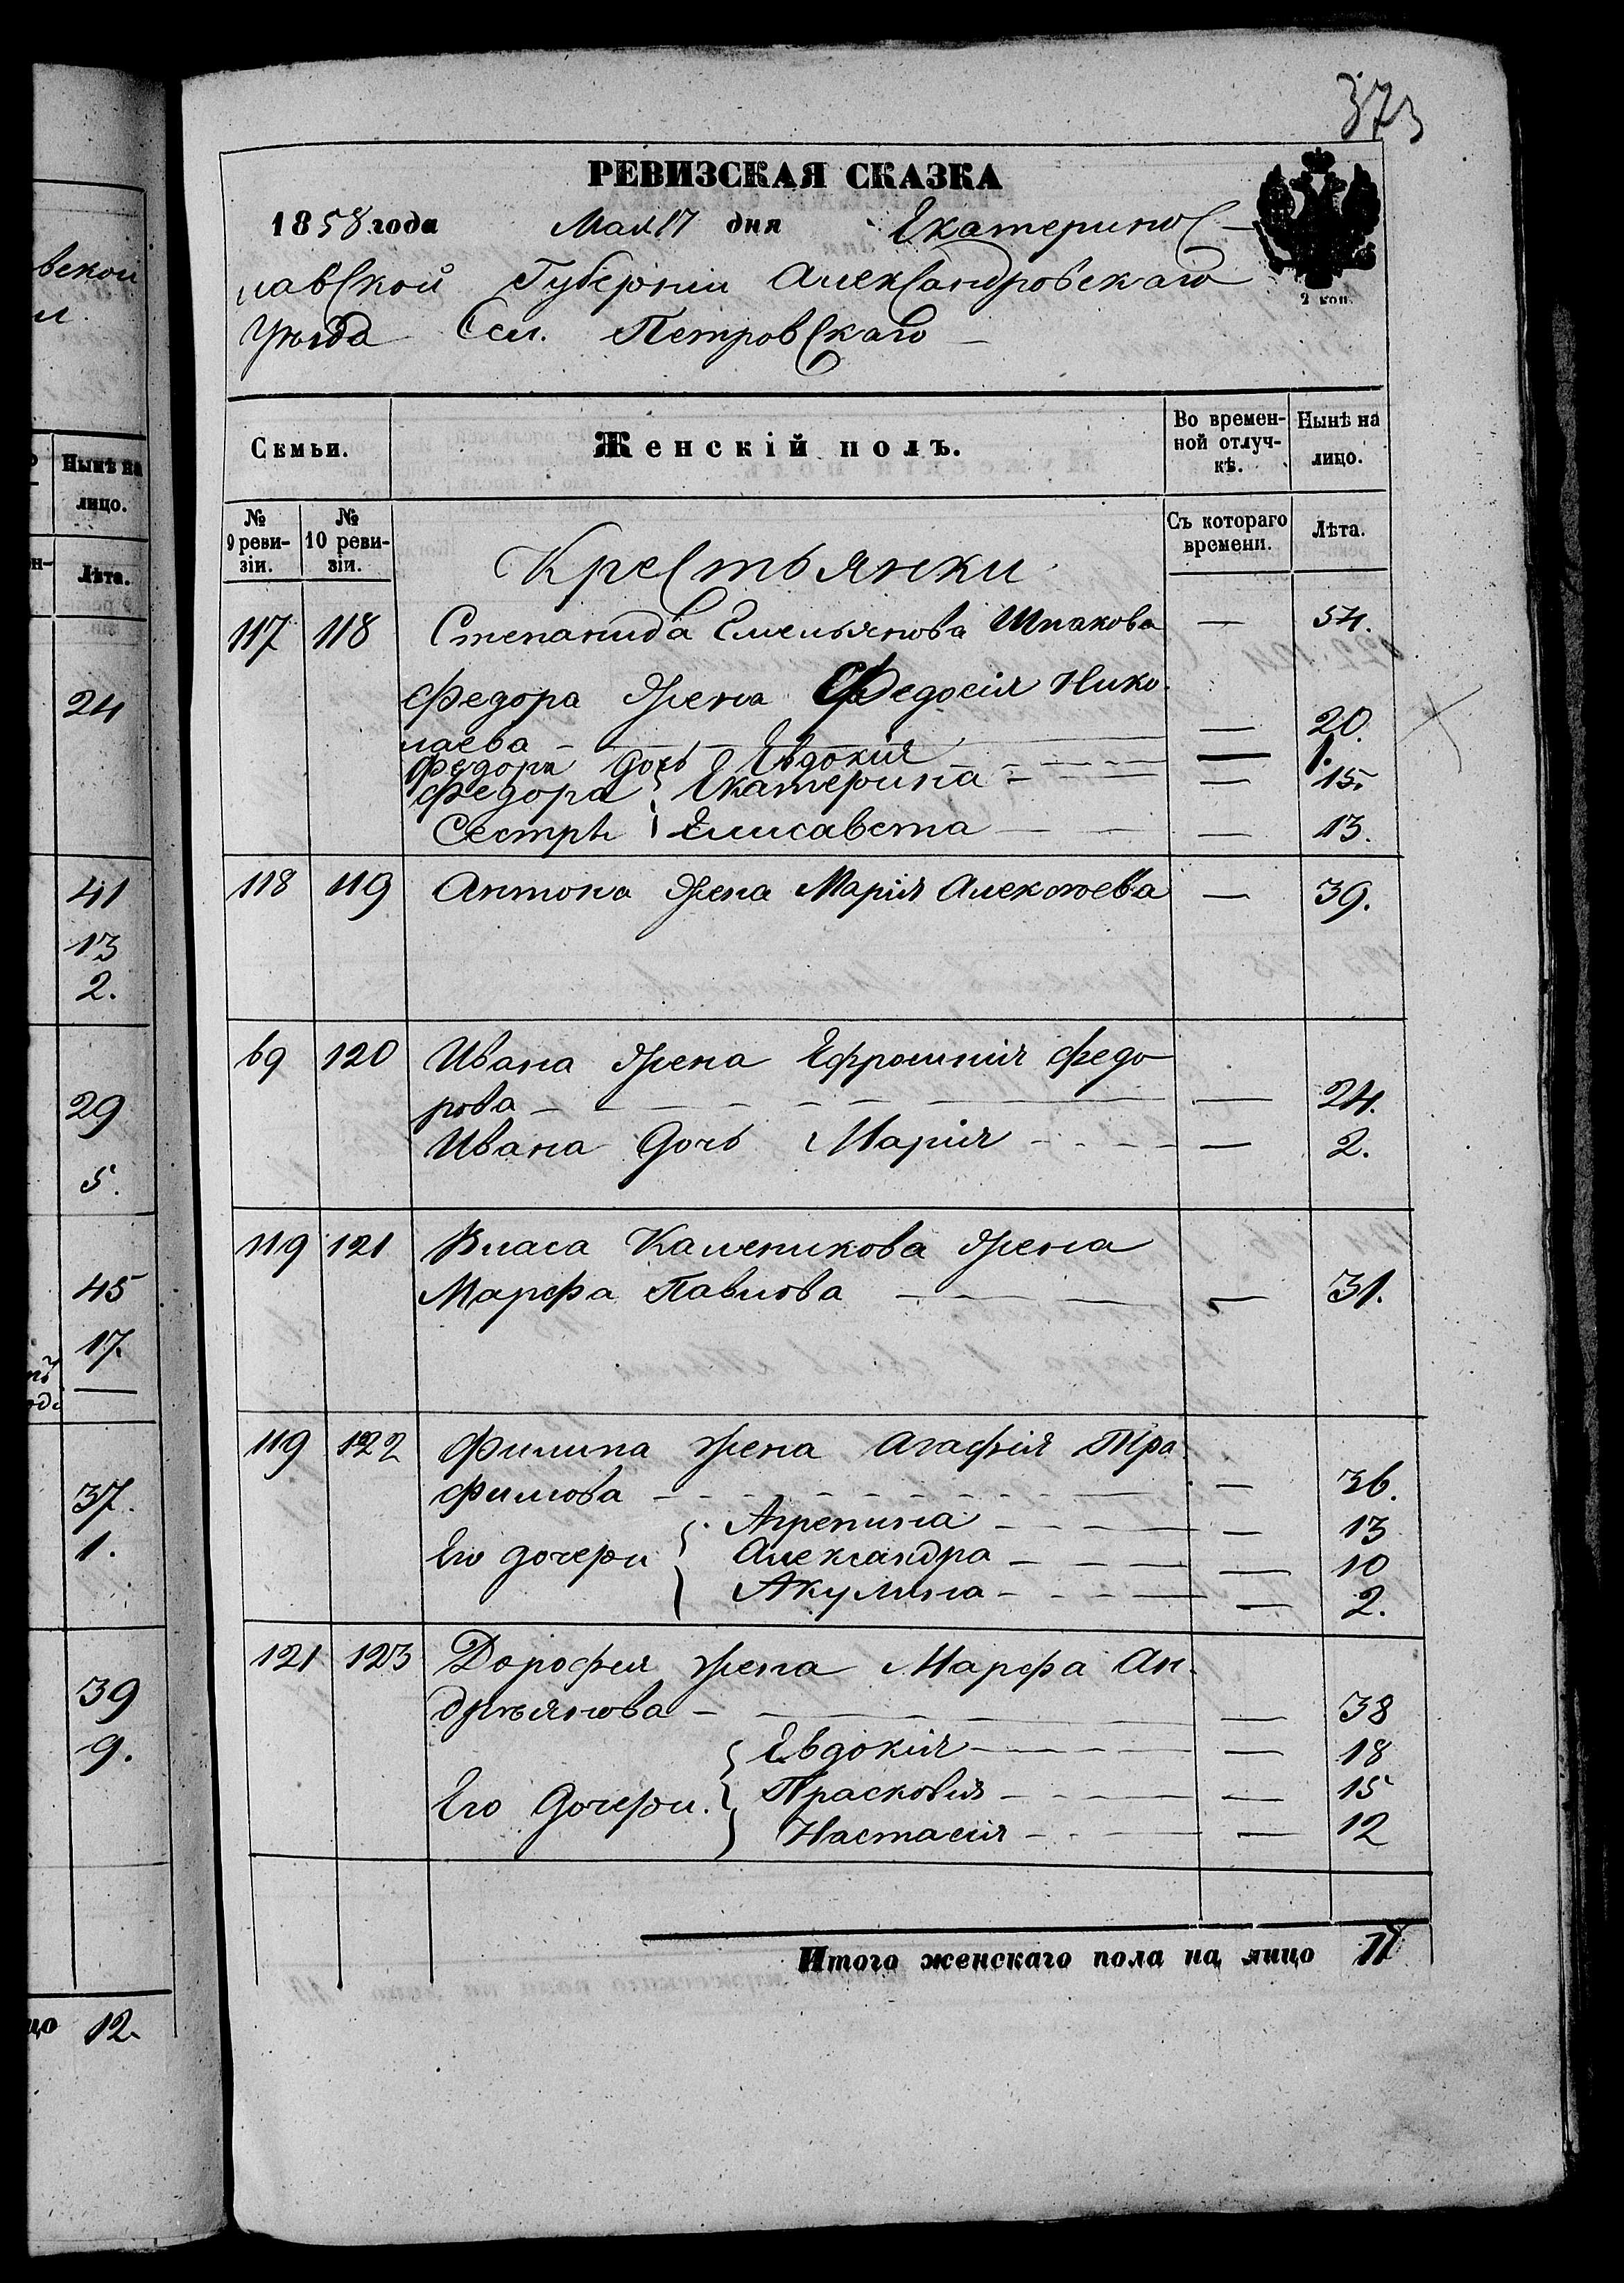 вской
и
Нынѣ на
лицо.
Лѣта.
24
41
13
2.
29
5.
45
17.
37.
1.
39
9.
12.
373
РЕВИЗСКАЯ СКАЗКА
1858 года Мая 17 дня Екатеринос-
лавской Губерніи Александровскаго
2 коп.
Уѣзда Сел. Петровскаго
Семьи. Женскій полъ. Во времен-ной отлуч-кѣ. Нынѣ на лицо.
№ 9 реви-зіи. № 10 реви-зіи. Съ котораго времени. Лѣта.
Крестьянки
117 118 Степанида Емельянова Шпакова — 54.
Федора жена Федосія Нико-
лаева — 20.
Федора дочь Евдокия — 1.
Федора Екатерина — 15.
Сестры Елисавета — 13.
118 119 Антона жена Марія Алексѣева — 39.
69 120 Ивана жена Ефросинія Федо-
рова — 24.
Ивана дочь Марія — 2.
119 121 Власа Каленикова жена
Марфа Павлова — 31.
119 122 Филипа жена Агафія Тра-
фимова — 36.
Агрепина — 13
Его дочери Александра — 10
Акулина — 2.
121 123 Дорофея жена Марфа Ан-
дреянова — 38
Евдокія — 18
Его дочери. Прасковія — 15
Настасія — 12
Итого женскаго пола на лицо